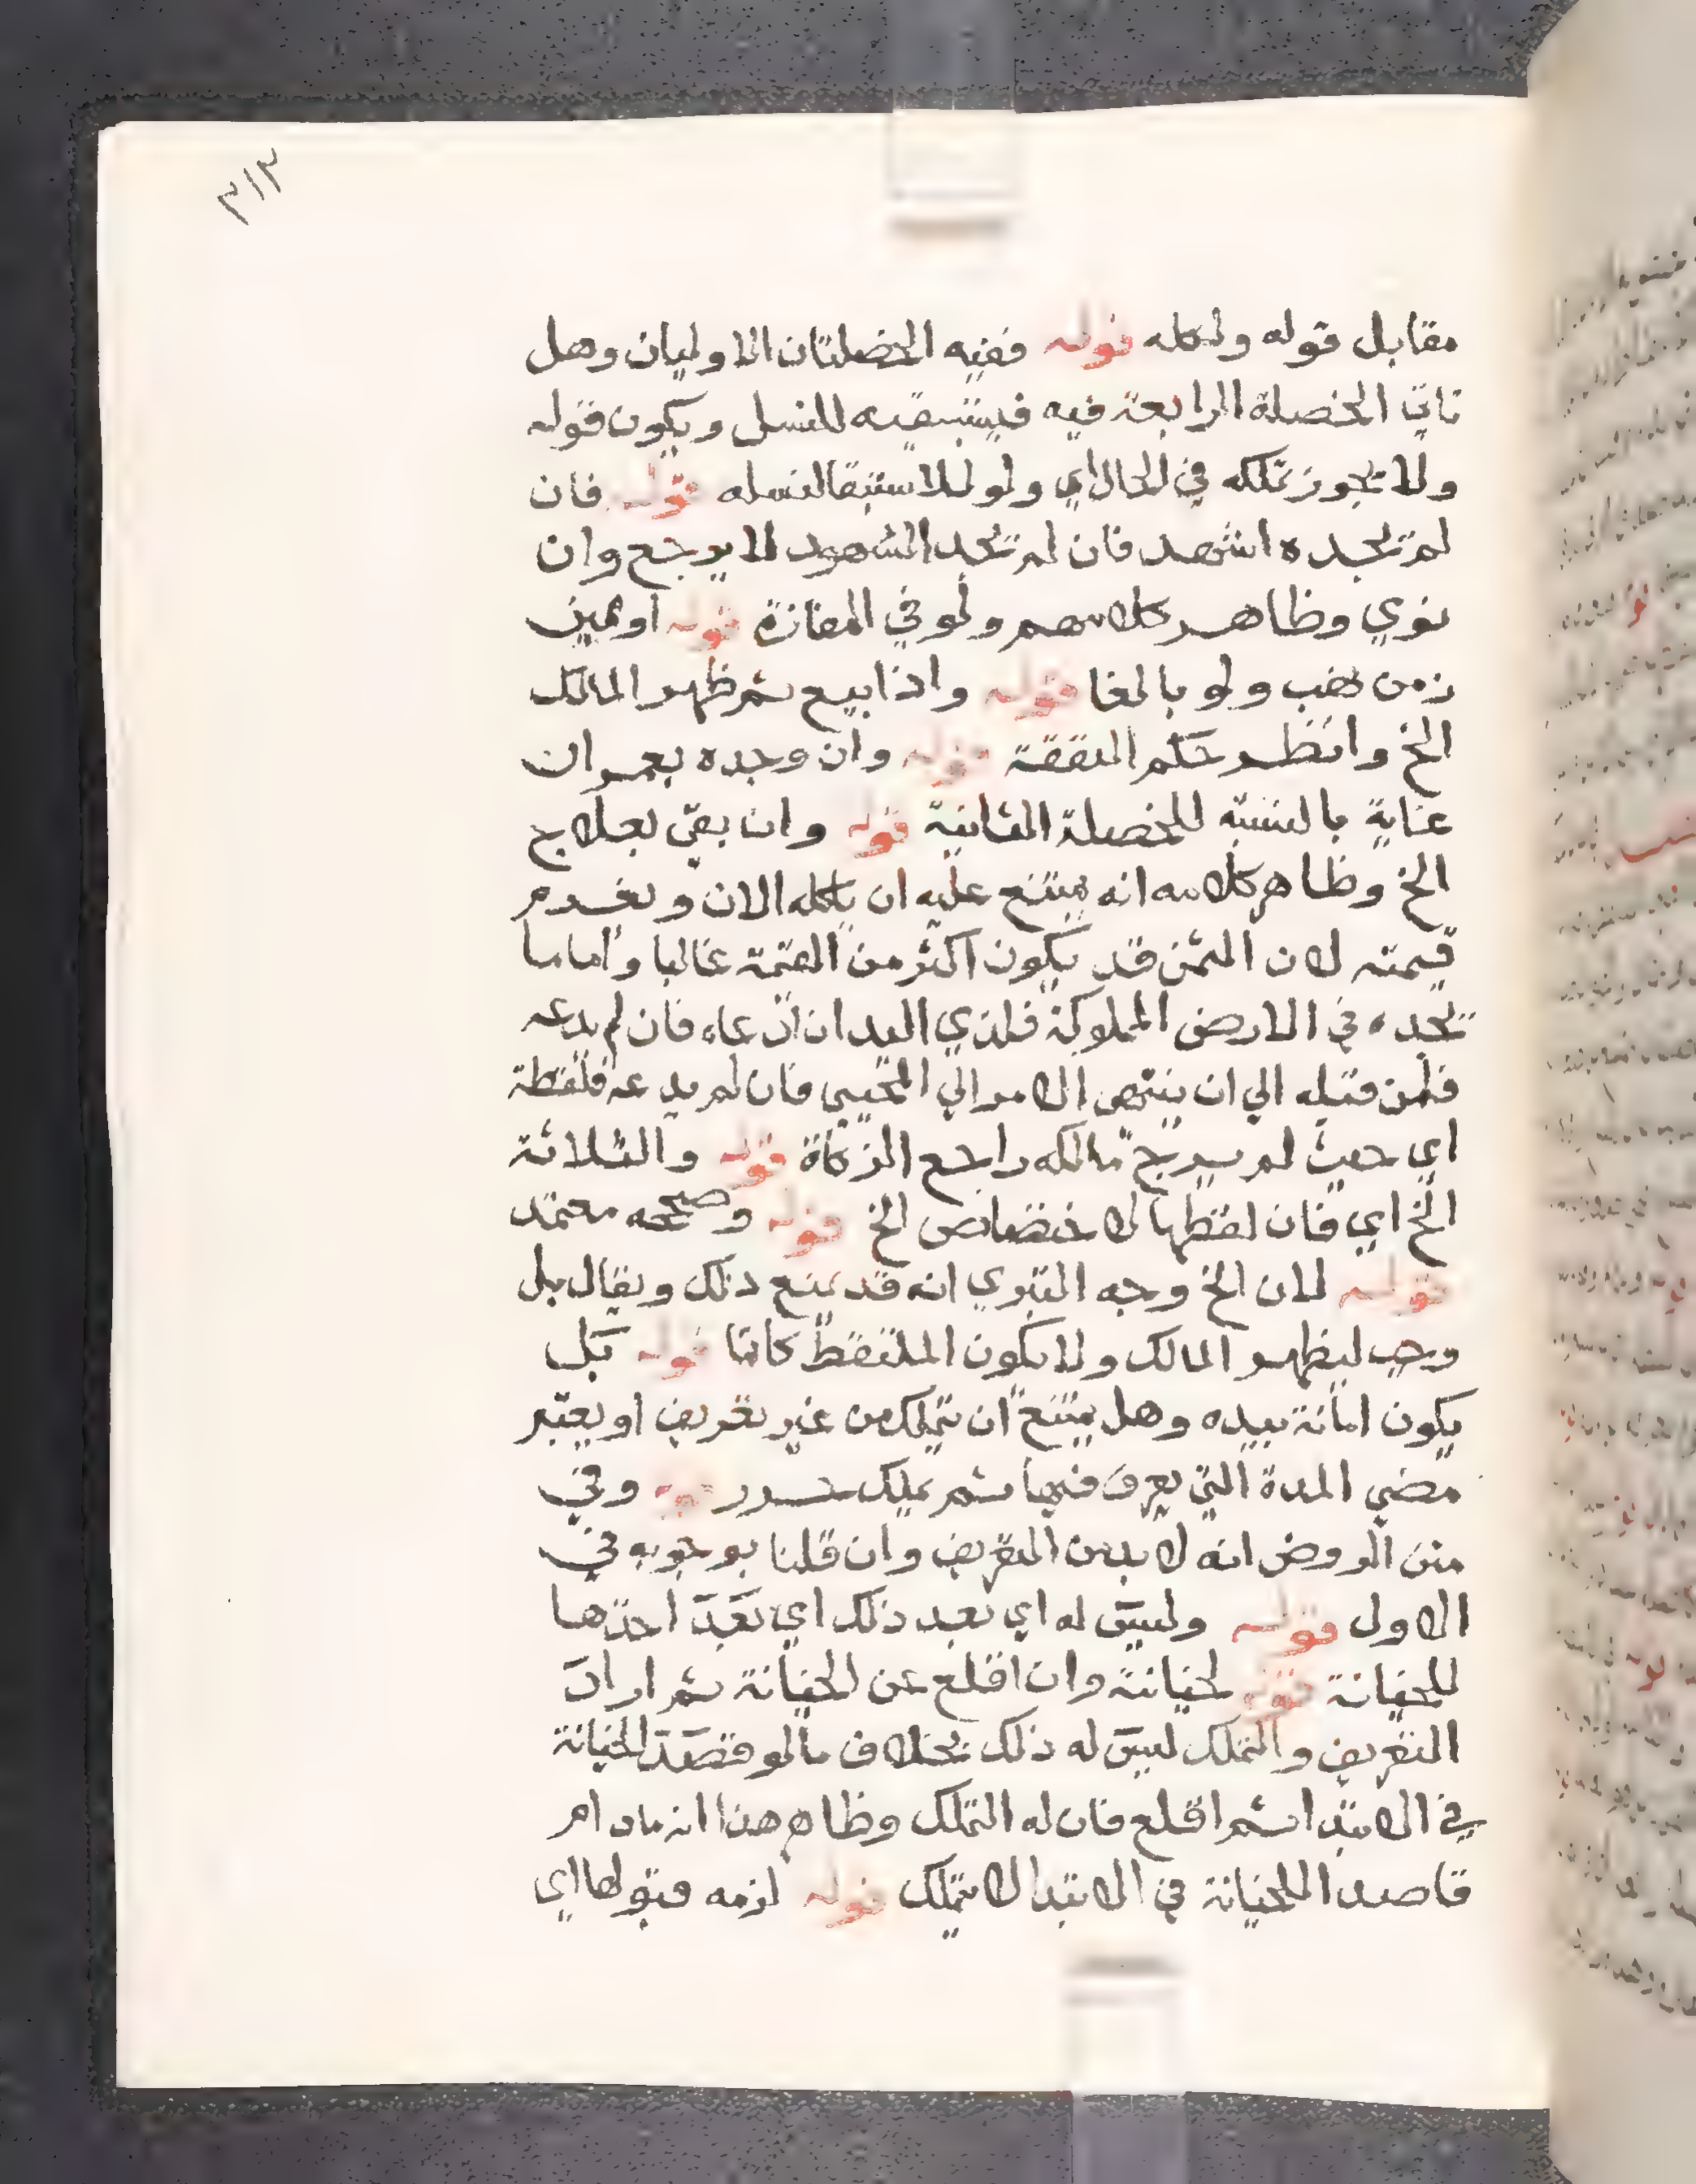 ٣١٣
مقابل قوله وله اكله قوله ففيه الخصلتان الاوليان وهل
تاتي الخصلة الرابعة فيه فيستبقيه للنسل ويكون قوله
ولا يجوز تملكه في الحال اي ولو للاستبقا لنسله قوله فان
لم يجده اشهد فان لم يجد الشهود لا يرجع وان
نوي وظاهر كلامهم ولو في المفازة قوله او يمين
زمن نهب ولو بالغا قوله واذا بيع ثم ظهر المالك
الخ وانظر حكم النفقة قوله وان وجده بعمران
غاية بالنسبة للخصلة الثانية قوله وان بقي بعلاج
الخ وظاهر كلامه انه يمتنع عليه ان ياكله الان ويغرم
قيمته لان الثمن قد يكون اكثر من القيمة غالبا واما ما
يجده في الارض المملوكة فلذي اليد ان ادعاه فان لم يدعه
فلمن قبله الي ان ينتهي الامر الي المحيي فان لم يدعه فلقطة
اي حيث لم يرج مالكه راجع الزكاة قوله والثلاثة
الخ اي فان لقطها لاختصاص الخ قوله وصححه معتمد
قوله لان الخ وجه التبري انه قد يمنع ذلك ويقال بل
وجب ليظهر المالك ولا يكون الملتقط كاتما قوله بل
يكون امانة بيده وهل يمتنع ان يتملك من غير تعريف او يعتبر
مضي المدة التي يعرف فيها ثم يملك حرر قوله وفي
متن الروض انه لا بد من التعريف وان قلنا بوجوبه في
الاول قوله وليس له اي بعد ذلك اي بعد اخذها
للخيانة قوله لخيانته وان اقلع عن الخيانة ثم اراد
التعريف والتملك ليس له ذلك بخلاف ما لو قصد الخيانة
في الابتدا ثم اقلع فان له التملك وظاهر هذا انه مادام
قاصدا للخيانة في الابتدا لا يتملك قوله لزمه قبولها اي